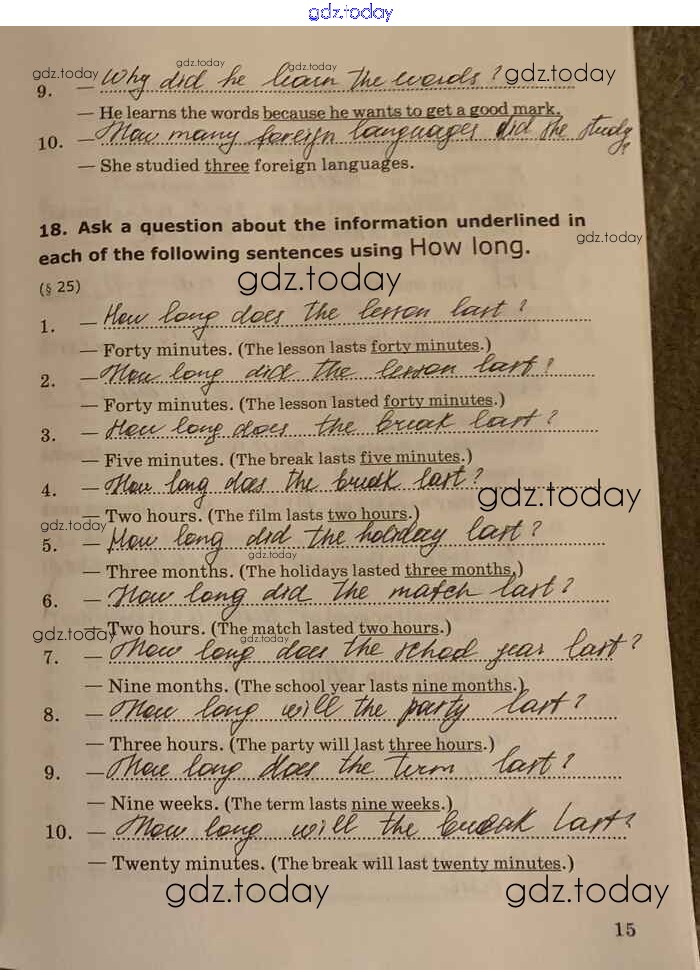 gdz.today
gdz.today gdz.today gdz.today gdz.today
9. — Why did he learn the words?
— He learns the words because he wants to get a good mark.
10. — How many foreign languages did she study
— She studied three foreign languages.
18. Ask a question about the information underlined in
each of the following sentences using How long.
gdz.today
(§ 25)
gdz.today
1. — How long does the lesson last?
— Forty minutes. (The lesson lasts forty minutes.)
2. — How long did the lesson last?
— Forty minutes. (The lesson lasted forty minutes.)
3. — How long does the break last?
— Five minutes. (The break lasts five minutes.)
4. — How long does the break last?
gdz.today
— Two hours. (The film lasts two hours.)
gdz.today
5. — How long did the holiday last?
gdz.today
— Three months. (The holidays lasted three months.)
6. — How long did the match last?
— Two hours. (The match lasted two hours.)
gdz.today gdz.today
7. — How long does the school year last?
— Nine months. (The school year lasts nine months.)
8. — How long will the party last?
— Three hours. (The party will last three hours.)
9. — How long does the term last?
— Nine weeks. (The term lasts nine weeks.)
10. — How long will the break last?
— Twenty minutes. (The break will last twenty minutes.)
gdz.today gdz.today
15